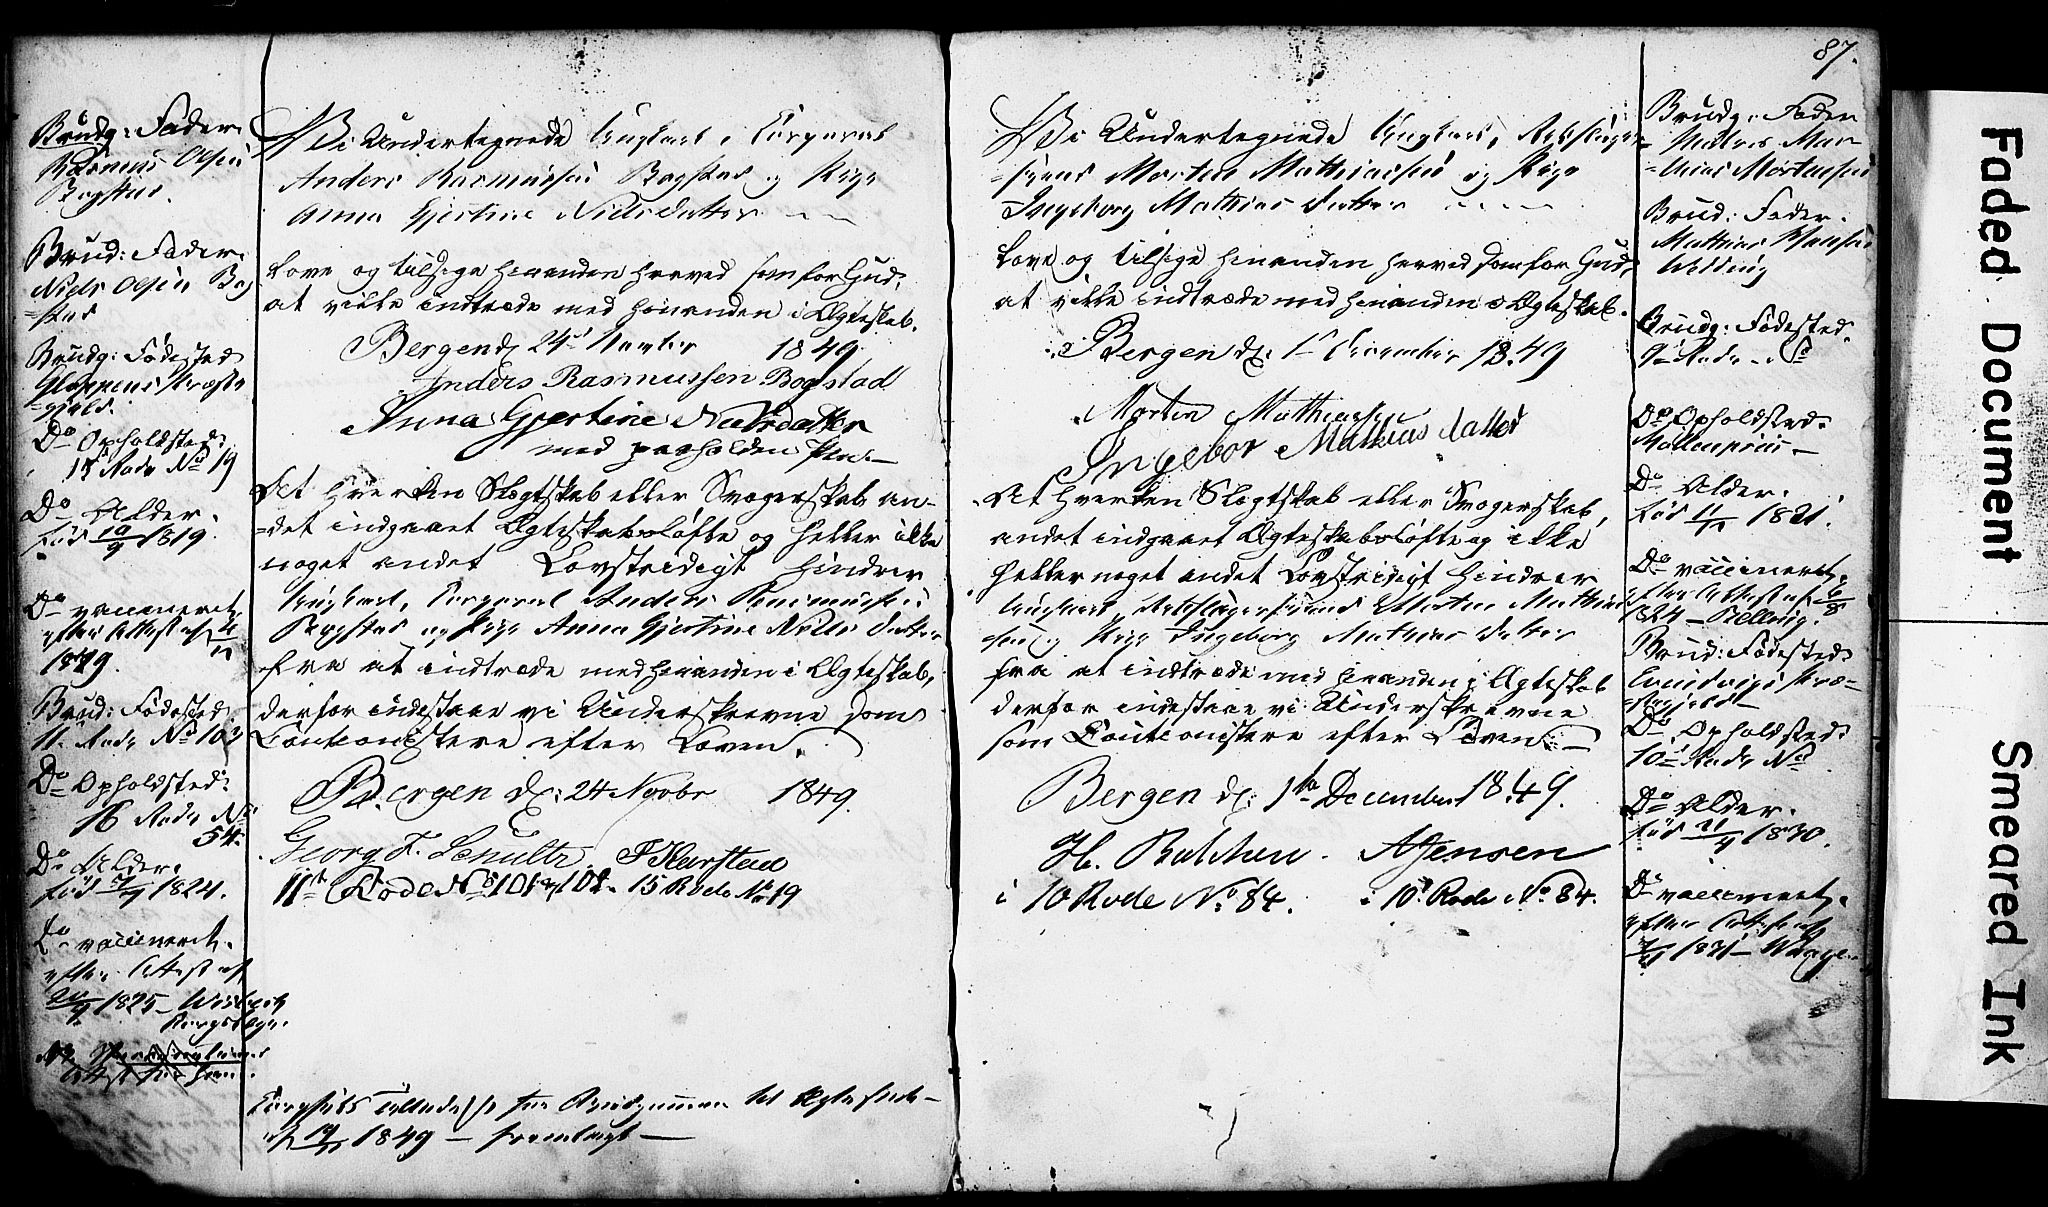 Brudg: Fader.
Rasmus Olsen
Bogstad.
Brud: Fader.
Niels Olsen Bog
=stad
Brudg: Fødested
Gloppens Præste
=gjeld.
Do Opholdsted:
15 Rode No 19
Do Alder.
fød 19/9 1819.
Do vaccineret.
efter Attest af 4/11
1849.
Brud: Fødested.
11. Rode No
Do Opholdsted:
16 Rode No
54.
Do Alder.
fød 1824.
Do vaccineret.
efter Attest af
1825 -
Vi Undertegnede Ungkarl, Corporal
Anders Rasmussen Bogstad og Pige
Anna Gjertine Nielsdatter
Love og tilsige hinanden herved som for Gud,
at ville indtræde med hinanden i Ægteskab.
Bergen d. 24 November 1849
Anders Rasmussen Bogstad
Anna Gjertine Nielsdatter
med paaholden Pen.
At hverken Slægtskab eller Svogerskab an-
=det indgaaet Ægteskabsløfte og heller ikke
noget andet Lovstridigt hindrer
Ungkarl, Corporal Anders Rasmussen
Bogstad og Pige Anna Gjertine Niels Datter
fra at indtræde med hinanden i Ægteskab,
derfor indestaae vi Underskrevne som
Cautionister efter Loven.
Bergen d: 24 Novbr 1849.
Georg F. Schultz. F Harstad
11te Rode No 101 & 102. 15 Rode No 19
Tilladelse for Brudgommen til Ægteskab
af 19/11 1849 - fremlagt -
87.
Vi Undertegnede Ungkarl,
Morten Mathiassen og Pige
Ingeborg Mathias Datter
Love og tilsige hinanden herved som for Gud,
at ville indtræde med hinanden i Ægteskab.
Bergen d. 1 December 1849
Morten Mathiassen
Ingebor Mathias datter
At hverken Slægtskab eller Svogerskab,
andet indgaaet Ægteskabsløfte og ikke
heller noget andet Lovstridigt hindrer
Ungkarl, Morten Mathias
sen og Pige Ingeborg Mathias Datter
fra at indtræde med hinanden i Ægteskab
derfor indestaae vi Underskrevne
som Cautionister efter Loven.
Bergen d: 1te December 1849.
H. AJensen
i 10 Rode No. 84. i 10 Rode No 84.
Brudg: Fader
Mortensen
Brud: Fader.
Mathias Hansen
Welding
Brudg: Fødested.
9 Rode No
Do Opholdsted:
Møllenpriis
Do Alder.
fød 1821.
Do vaccineret.
efter Attest af 6/8
1824
Brud: Fødested:
Lindviigs Præ=
=stegjeld
Do Opholdsted:
10 Rode No
Do Alder.
fød 1830.
Do vaccineret.
efter Attest af
1831 -
Faded Document
Smeared Ink